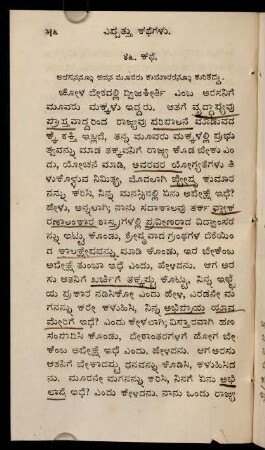 ೫೬ ಎಪ್ಪತ್ತು ಕಥೆಗಳು.
೪೩. ಕಥೆ.
ಅರಸನನ್ನೂ ಅವನ ಮೂವರು ಕುಮಾರರನ್ನೂ ಕುರಿತದ್ದು.
ಚೋಳ ದೇಶದಲ್ಲಿ ದ್ವಿಜಕೀರ್ತಿ ಎಂಬ ಅರಸನಿಗೆ
ಮೂವರು ಮಕ್ಕಳು ಇದ್ದರು. ಆತಗೆ ವೃದ್ಧಾಪ್ಯವು
ಪ್ರಾಪ್ತವಾದ್ದರಿಂದ ರಾಜ್ಯವು ಪರಿಪಾಲನೆ ಮಾಡುವದ
ಕ್ಕೆ ಶಕ್ತಿ ಇಲ್ಲದೆ, ತನ್ನ ಮೂವರು ಮಕ್ಕಳಲ್ಲಿ ಪ್ರಭು
ತ್ವವನ್ನು ಮಾಡ ತಕ್ಕವನಿಗೆ ರಾಜ್ಯ ಕೊಡ ಬೇಕು ಎಂ
ದು, ಯೋಚನೆ ಮಾಡಿ, ಅವರವರ ಯೋಗ್ಯತೆಗಳು ತಿ
ಳುಕೊಳ್ಳುವ ನಿಮಿತ್ಯ, ಮೊದಲಾಗಿ ಜ್ಯೇಷ್ಠ ಕುಮಾರ
ನನ್ನು ಕರಿಸಿ, ನಿನ್ನ ಮನಸ್ಸಿನಲ್ಲಿ ಏನು ಅಪೇಕ್ಷೆ ಇಧೆ?
ಹೇಳು, ಅನ್ನಲಾಗಿ; ನಾನು ಸದಾಕಾಲವು ತರ್ಕ ವ್ಯಾಕ
ರಣಾಲಂಕಾರ ಶಾಸ್ತ್ರಗಳಲ್ಲಿ ಪ್ರವೀಣರಾದ ವಿದ್ವಾಂಸರ
ನ್ನು ಇಟ್ಟು ಕೊಂಡು, ಶ್ರೇಷ್ಠವಾದ ಗ್ರಂಥಗಳ ದೆಶೆಯಿಂ
ದ ಕಾಲಕ್ಷೇಪವನ್ನು ಮಾಡಿ ಕೊಂಡು, ಇರ ಬೇಕೆಂಬ
ಅಪೇಕ್ಷೆ ತುಂಬಾ ಇಧೆ ಎಂದು, ಹೇಳಿದನು. ಆಗ ಅರ
ಸು ಆತನಿಗೆ ಖರ್ಚಿಗೆ ತಕ್ಕಷ್ಟು ಕೊಟ್ಟು, ನಿನ್ನ ಇಚ್ಛೆ
ಯ ಪ್ರಕಾರ ನಡಿಸಿಕೋ ಎಂದು ಹೇಳಿ, ಎರಡನೇ ಮ
ಗನನ್ನು ಕರೇ ಕಳುಹಿಸಿ, ನಿನ್ನ ಅಭಿಪ್ರಾಯ ಯಾವ
ಮೇರಿಗೆ ಇಧೆ? ಎಂದು ಕೇಳಲಾಗಿ; ವಿಸ್ತಾರವಾಗಿ ಹಣ
ಸಂಪಾದಿಸಿ ಕೊಂಡು, ದೇಶಾಂತರಗಳಿಗೆ ಹೋಗ ಬೇ
ಕೆಂಬ ಅಪೇಕ್ಷೆ ಇಧೆ ಎಂದು, ಹೇಳಿದನು. ಆಗ ಅರಸು
ಆತನಿಗೆ ಬೇಕಾದಷ್ಟು ಧನವನ್ನು ಕೊಡಿಸಿ, ಕಳುಹಿಸಿದ
ನು. ಮೂರನೇ ಮಗನನ್ನು ಕರಿಸಿ, ನಿನಗೆ ಏನು ಅಭಿ
ಲಾಪೆ ಇಧೆ? ಎಂದು ಕೇಳಿದನು. ನಾನು ಒಂದು ರಾಜ್ಯ